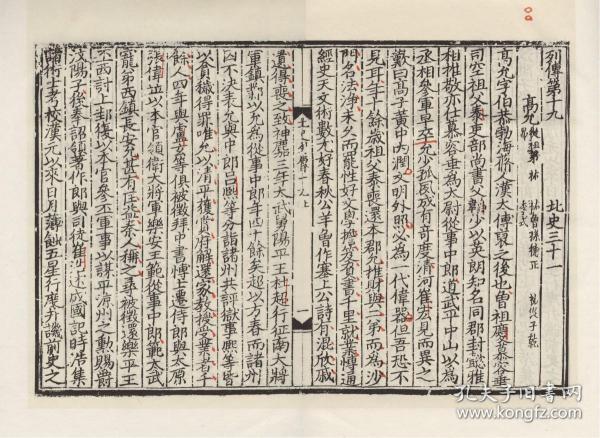 列傳第十九 北史三十一
高允 從祖弟祐 祐曾孫德正 祐從子乾
昂 季式
高允字伯恭勃海蓨人漢太傅裒之後也曾祖慶慕容垂
司空祖父泰吏部尚書父韜少以英朗知名同郡封懿雅
相推敬亦仕慕容垂為太尉從事中郎道武平中山以為
丞相參軍早卒允少孤夙成有奇度清河崔宏見而異之
歎曰高子黃中內潤文明外照必為一代偉器但吾恐不
見耳年十餘歲祖父泰喪還本郡允推財與二弟而為沙
門名法淨未久而罷性好文學擔笈負書千里就業博通
經史天文術數尤好春秋公羊曾作塞上公詩有混欣戚
遺得喪之致神䴥三年太武舅陽平王杜超行征南大將
軍鎮鄴以允為從事中郎年四十餘矣超以方春而諸州
囚不決表允與中郎呂熙等分詣諸州共評獄事熙等皆
以貪穢得罪唯允以清平獲賞府解還家教授受業者千
餘人四年與盧玄等俱被徵拜中書博士遷侍郎與太原
張偉並以本官領衛大將軍樂安王範從事中郎範太武
寵弟西鎮長安允甚有匡益秦人稱之尋被徵還樂平王
丕西討上邽復以本官參丕軍事以謀平涼州之勳賜爵
汶陽子後奉詔領著作郎與司徒崔浩述成國記時浩集
諸術士考校漢元以來日月薄蝕五星行度并譏前史之
孔夫子旧书网
www.kongfz.com